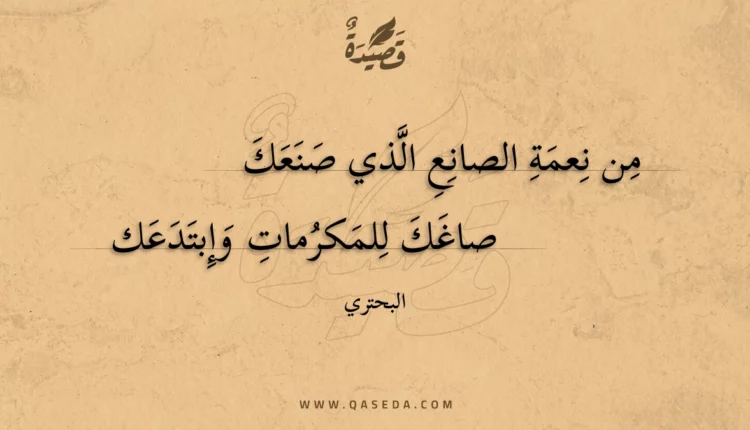 قَصِيْدَةٌ
مِن نِعمَةِ الصانِعِ الَّذي صَنَعَكَ
صاغَكَ لِلمَكرُماتِ وَإِبتَدَعَك
البحتري
WWW.QASEDA.COM